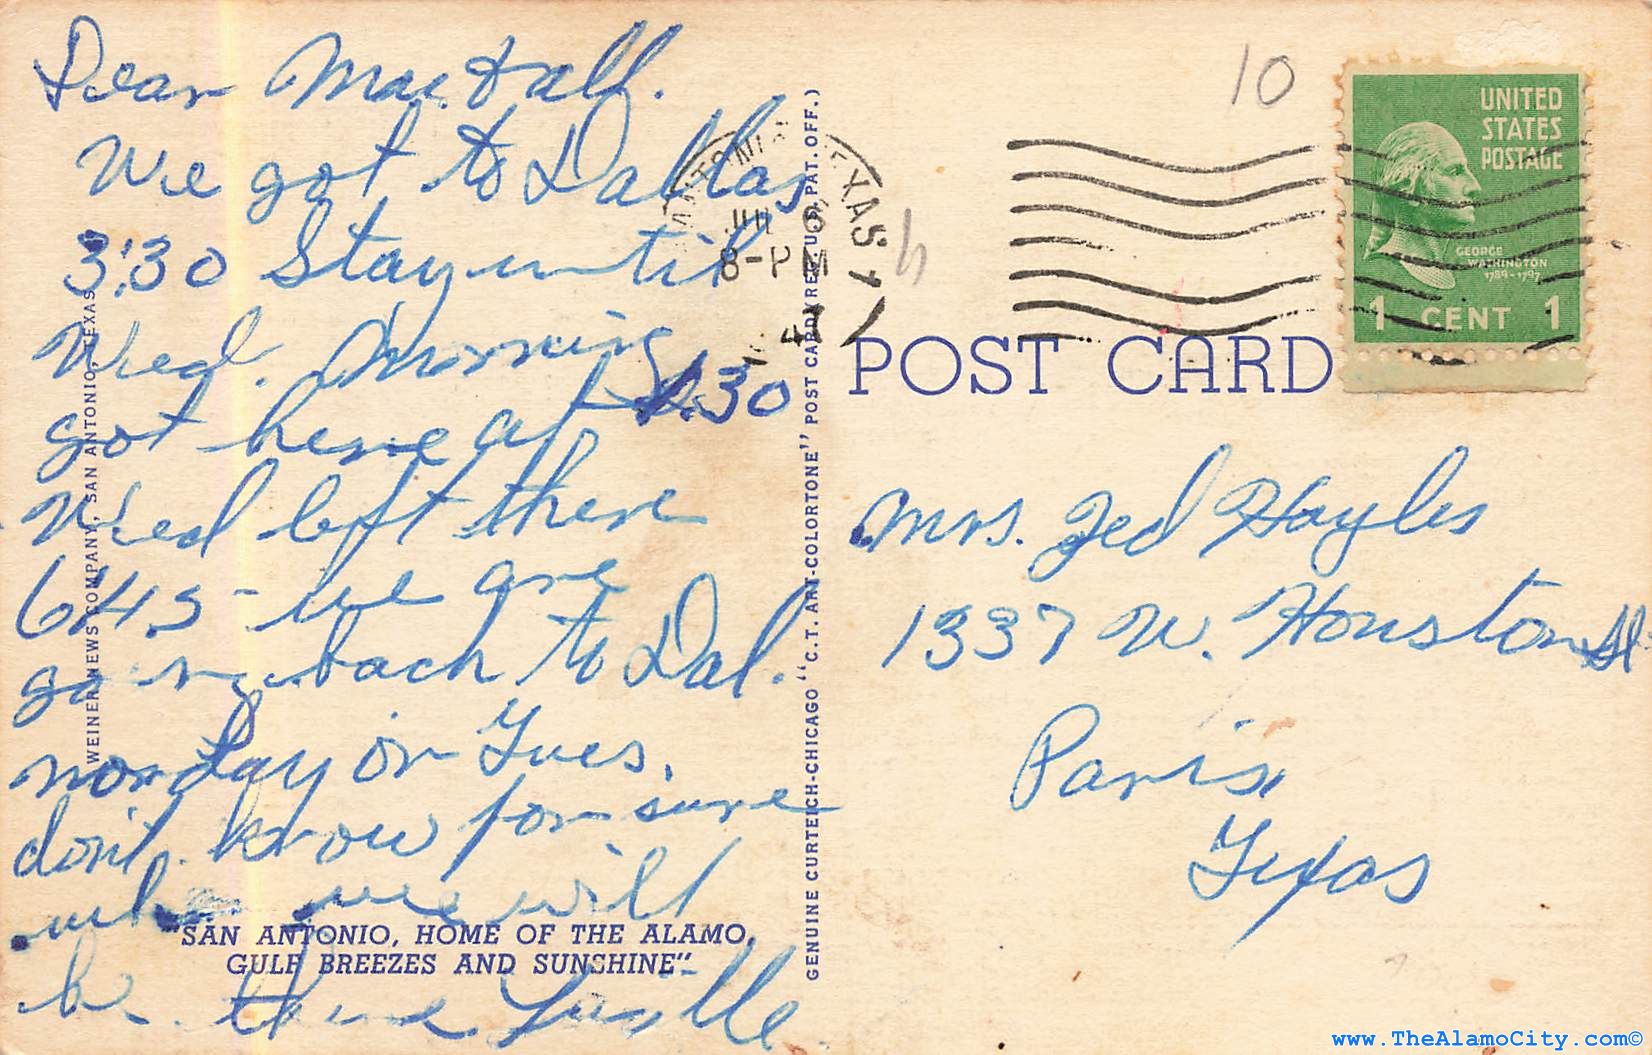 Dear Mae & all.
We got to Dallas
3:30 Stay until
Wed. morning
got here at 1:30
Wed left there
6:45 - we are
going back to Dal.
monday or Tues.
don't know for sure
when we will
be there Lucille
"SAN ANTONIO, HOME OF THE ALAMO,
GULF BREEZES AND SUNSHINE"
WEINER NEWS COMPANY, SAN ANTONIO, TEXAS
GENUINE CURTEICH-CHICAGO "C.T. ART-COLORTONE" POST CARD (REG. U.S. PAT. OFF.)
ANTONIO TEXAS
8-PM
10
UNITED
STATES
POSTAGE
GEORGE
WASHINGTON
1789-1797
1 CENT 1
POST CARD
Mrs. Ted Hayles
1337 W. Houston St
Paris
Texas
www.TheAlamoCity.com©